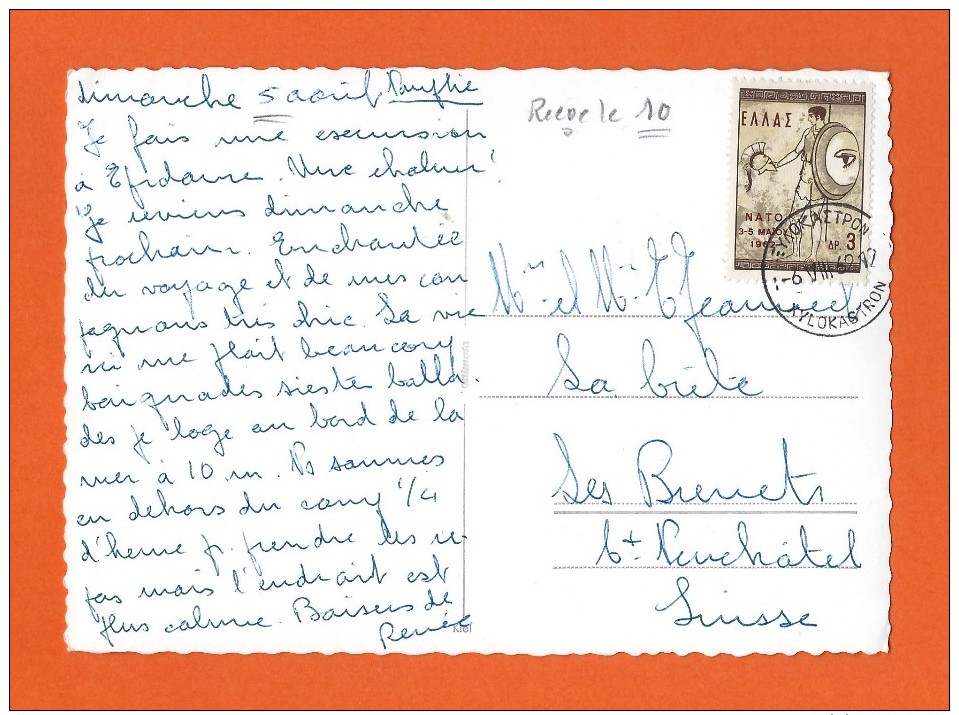 Dimanche 5 août
Reçue le 10
Je fais une excursion
à Epidaure. Une chaleur!
Je reviens dimanche
prochain. Enchantée
du voyage et de mes com
pagnons très chic. La vie
ici me plait beaucoup
baignades siestes balla.
des je loge au bord de la
mer à 10 m. Ns sommes
en dehors du camp 1/4
d'heure p. prendre les re-
pas mais l'endroit est
plus calme. Baisers de
Renée
ΕΛΛΑΣ
NATO
3-5 ΜΑΪΟΥ
1962
ΔΡ. 3
ΞΥΛΟΚΑΣΤΡΟΝ
XYLOKASTRON
M. et Mme Jeanneret
La
Les Brenets
Ct Neuchâtel
Suisse